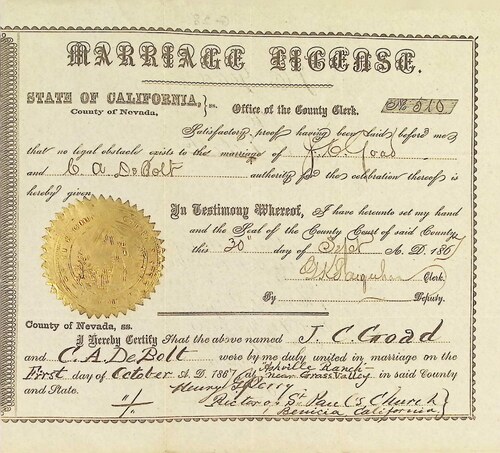 MARRIAGE LICENSE.
STATE OF CALIFORNIA, } ss.
County of Nevada,
Office of the County Clerk.
No 510
Satisfactory proof having been laid before me
that no legal obstacle exists to the marriage of J. C. Goad
and C. A. DeBolt authority for the celebration thereof is
hereby given.
In Testimony Whereof, I have hereunto set my hand
and the Seal of the County Court of said County
this 30th day of Sept A. D. 1867
Clerk.
By Deputy.
County of Nevada, ss.
I Hereby Certify That the above named J. C. Goad
and C. A. DeBolt were by me duly united in marriage on the
First day of October A. D. 1867 at Ashville Ranch
near Grass Valley in said County
and State.
Rector of St Paul's Church }
Benicia California. }